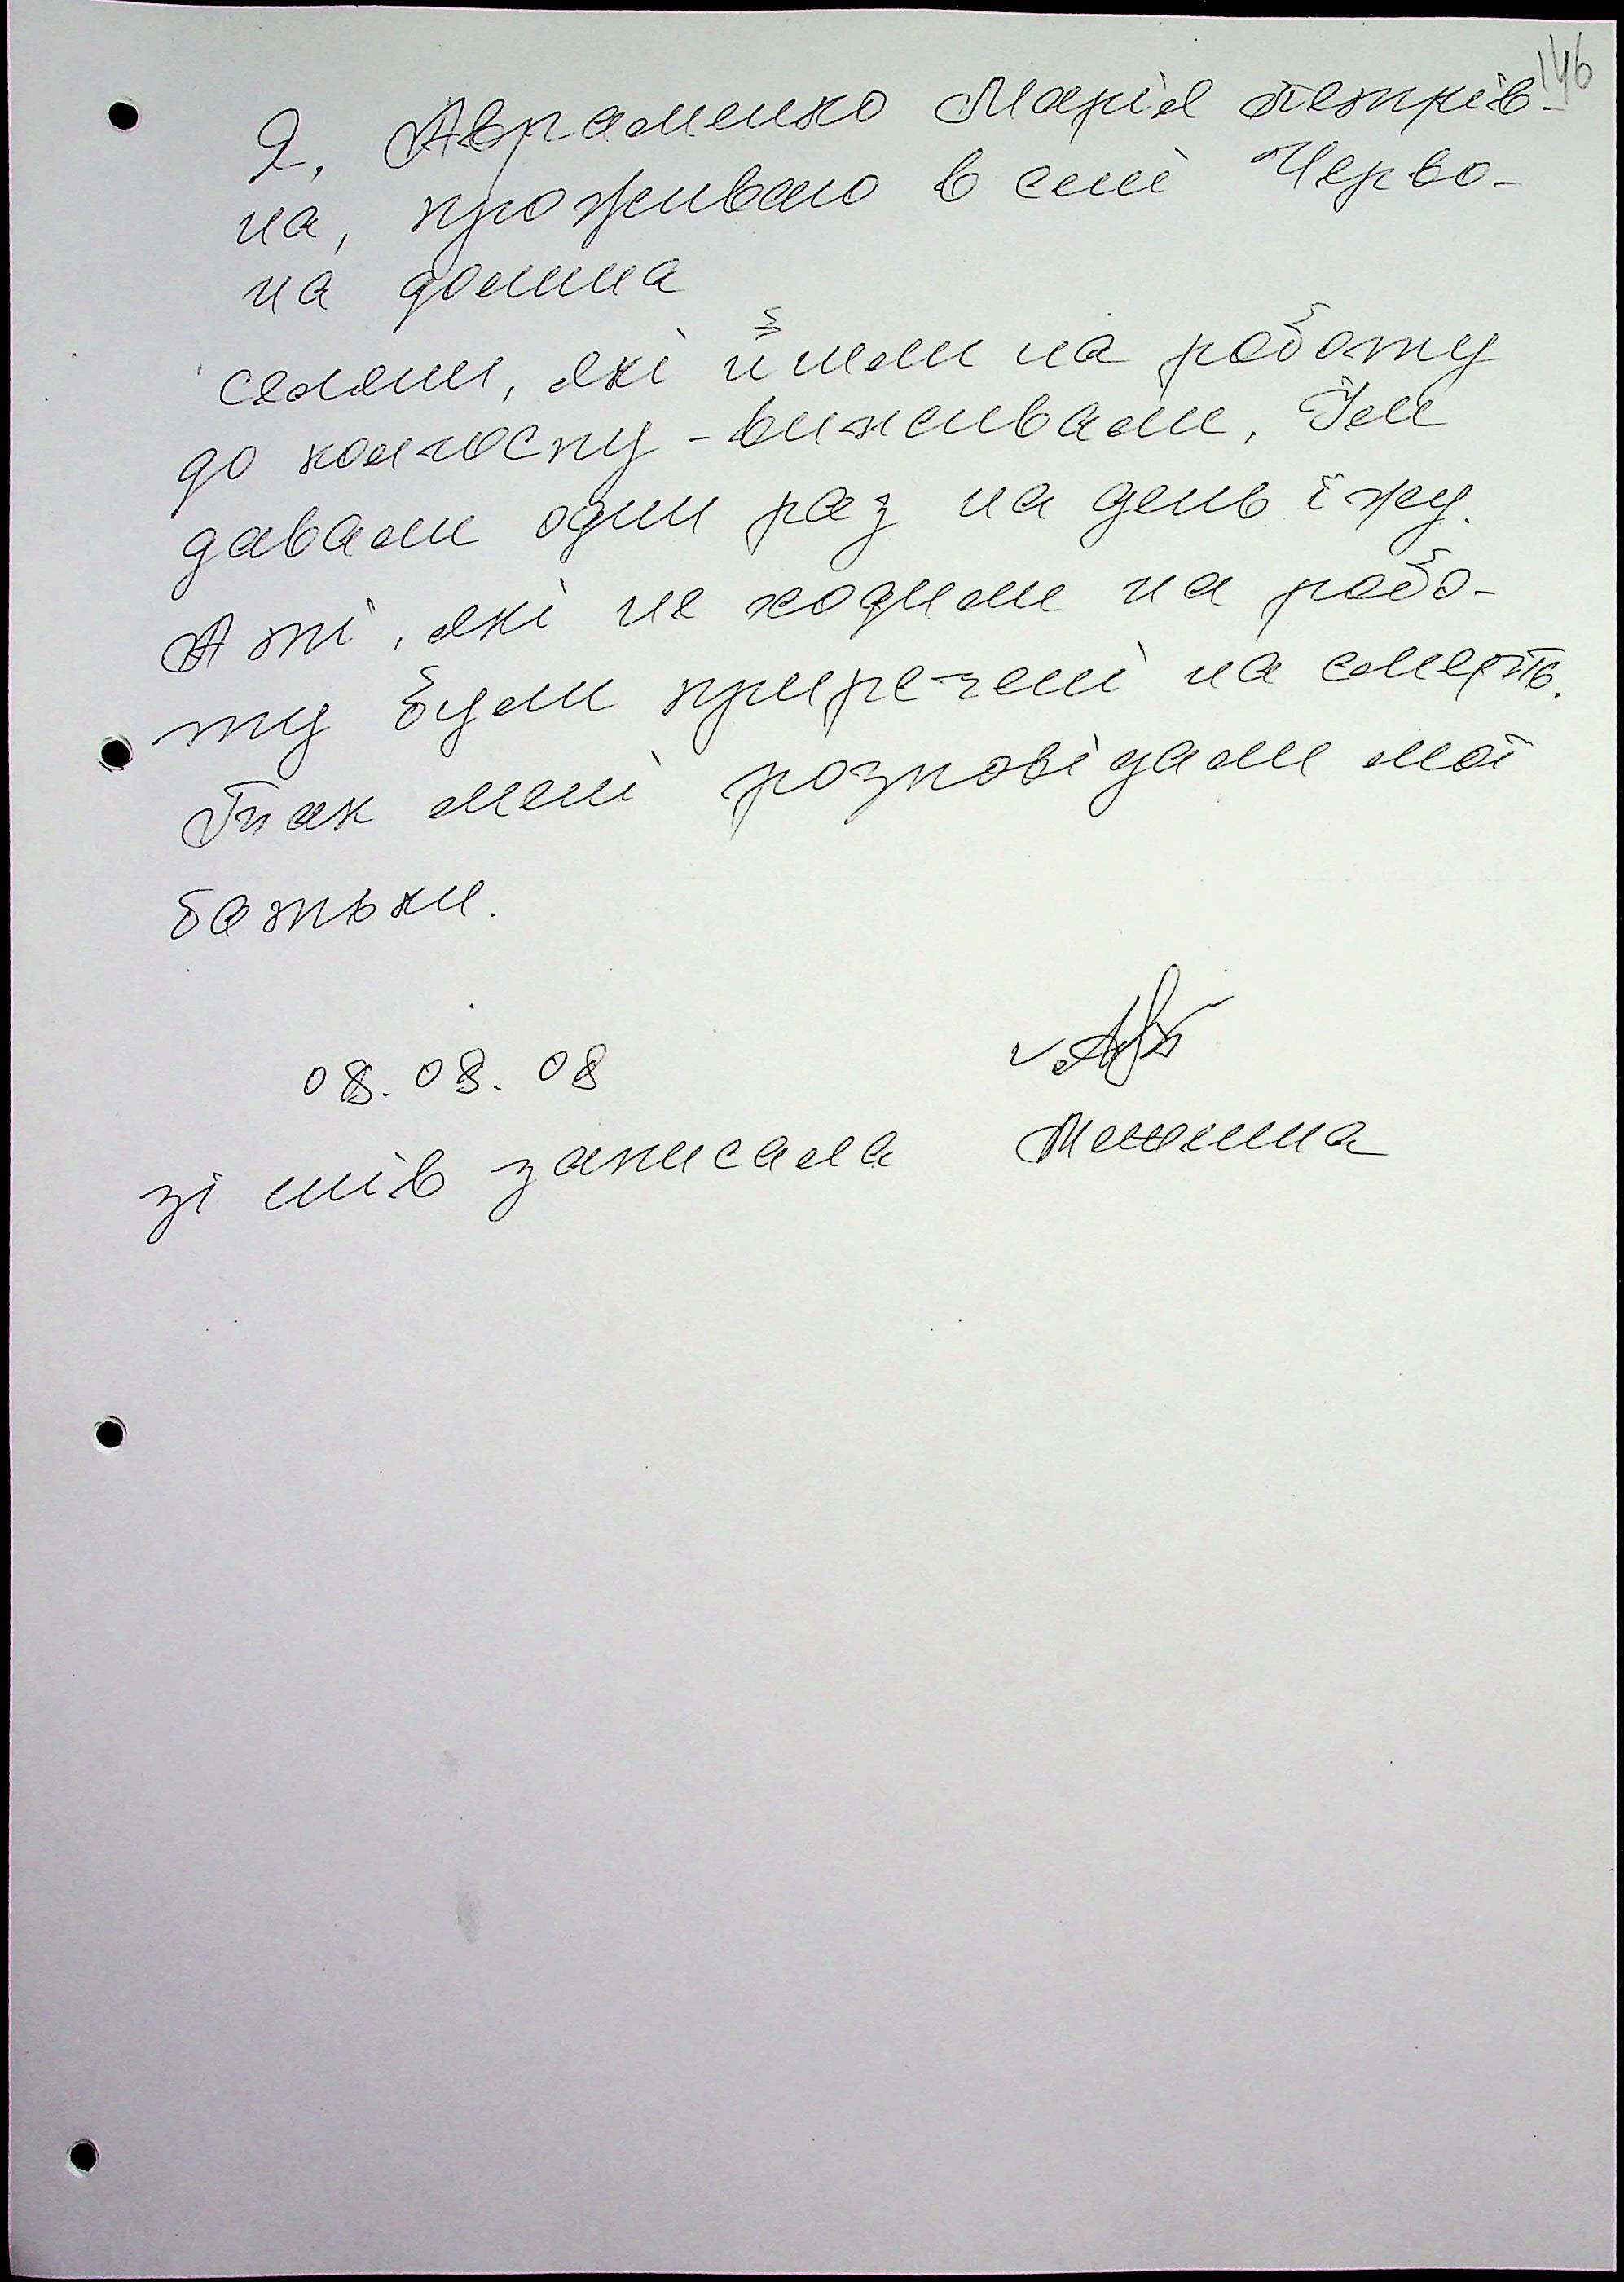 146
Я, Авраменко Марія Петрів-
на, проживаю в селі Черво-
на долина
селяни, які йшли на роботу
до колгоспу - виживали, їм
давали один раз на день їжу.
А ті, які не ходили на робо-
ту були приречені на смерть.
Так мені розповідали мої
батьки.
08.08.08
зі слів записала